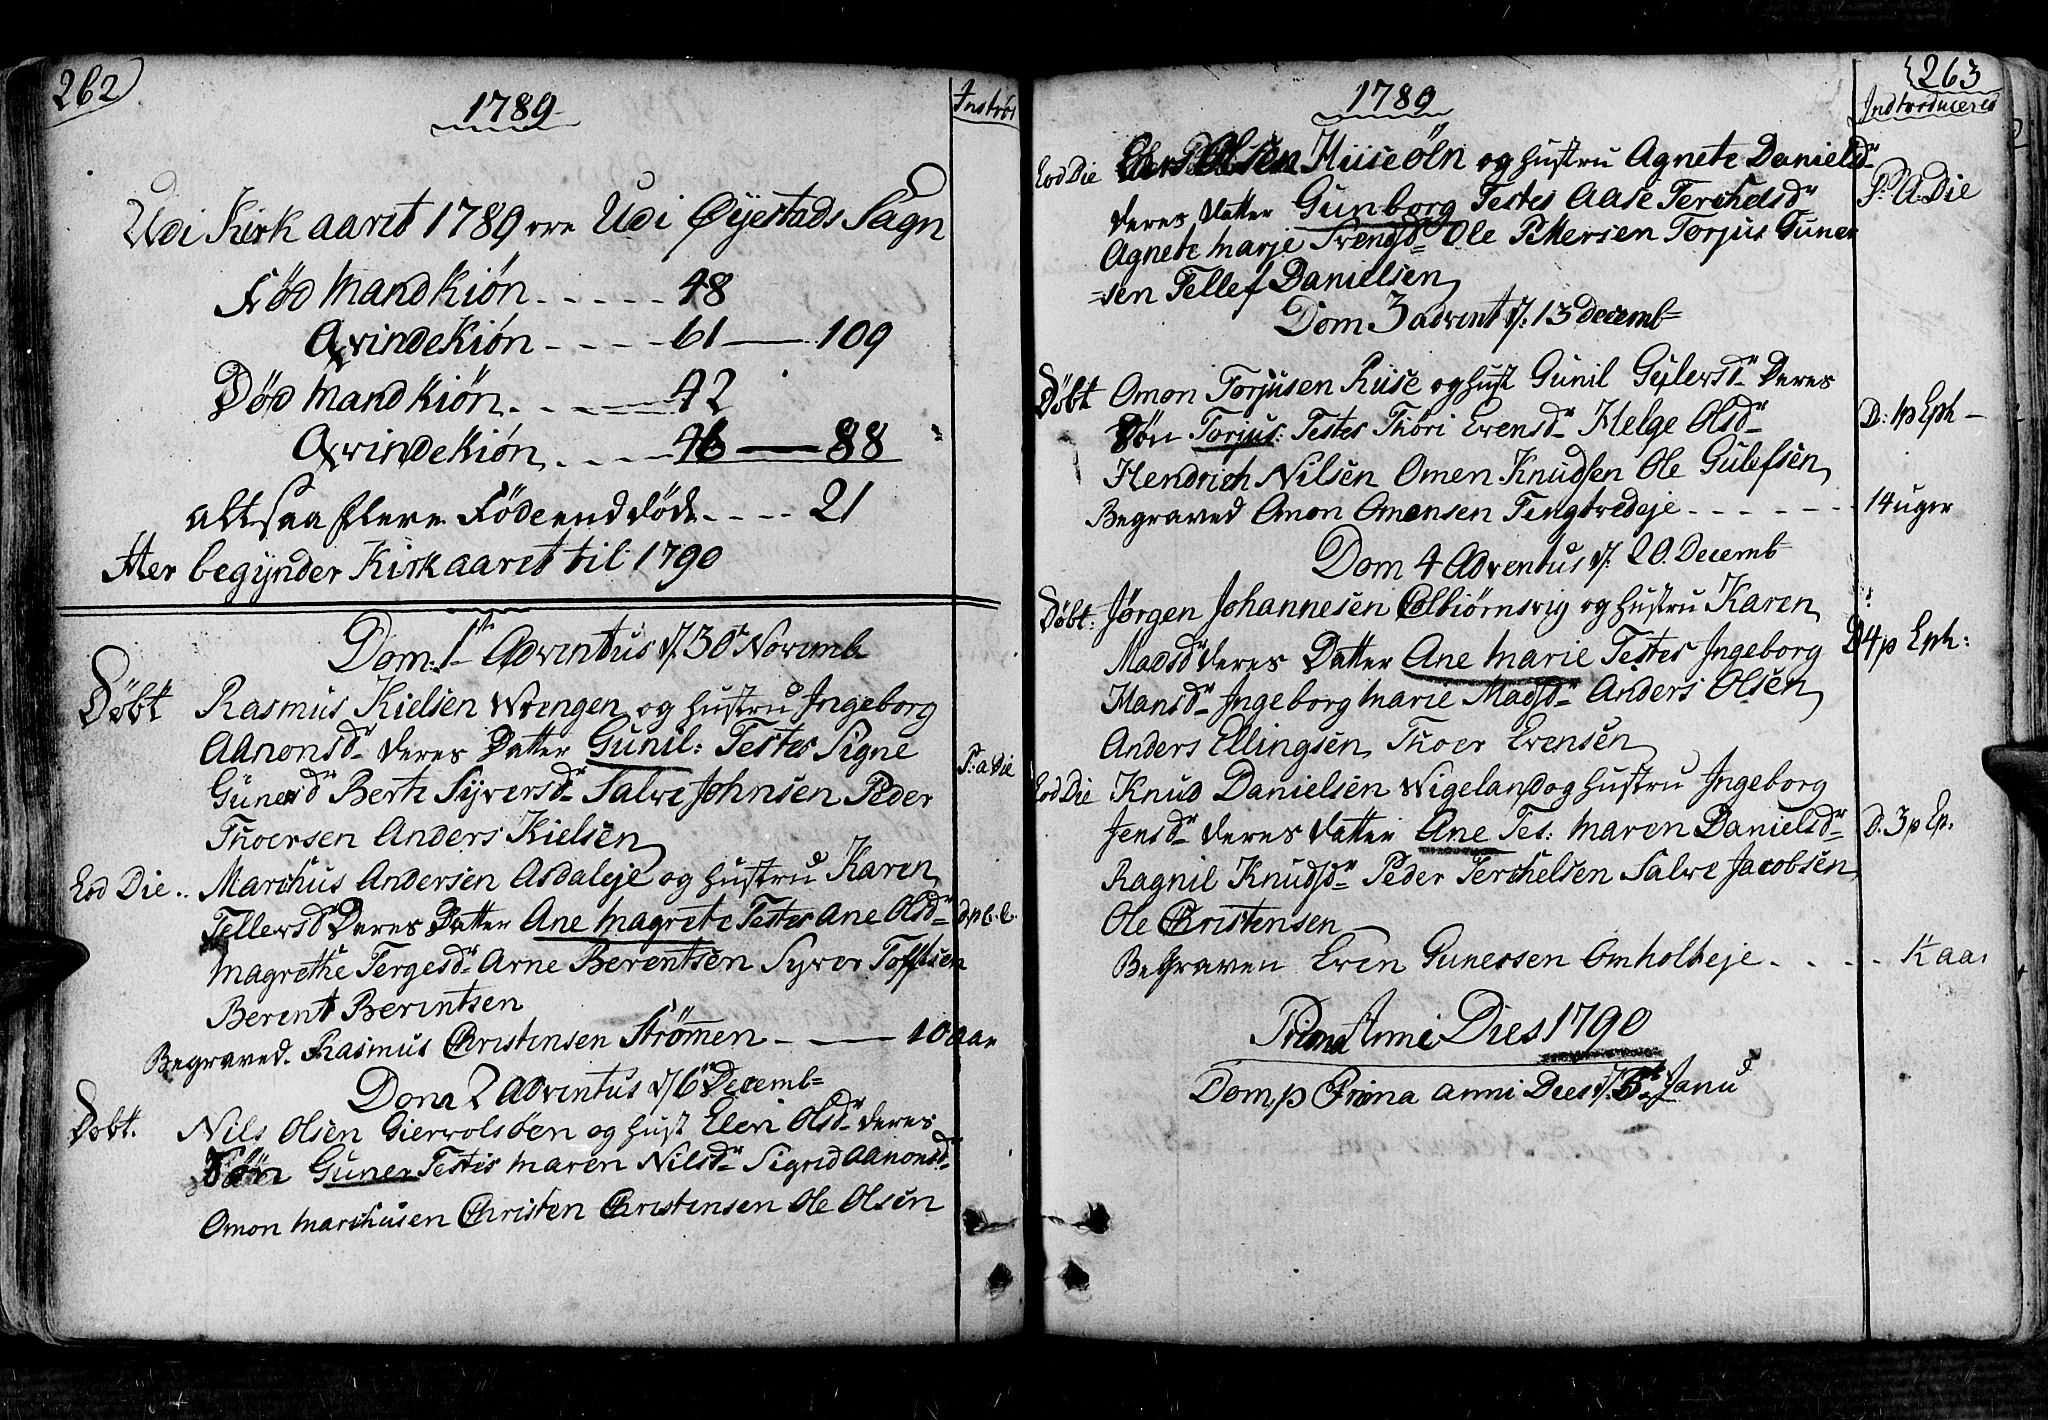 262
1789
Introd
Udi Kirkaaret 1789 ere Udi Øyestads Sagn
Fød Mandkiøn - - - - - 48
Qvindekiøn - - - - 61 — 109
Død Mandkiøn - - - - 42
Qvindekiøn - - - - 46 — 88
altsaa flere Føde end døde - - - - 21
Her begynder Kirkaaret til 1790
Dom: 1te Adventus d/ 30te Novemb
Døbt Rasmus Kielsen Wrengen og hustru Ingeborg
Aanonsd deres Datter Gunil: Testes Signe
Gunersd Berte Syversd Salve Johnsen Peder P: a Die
Thoersen Anders Kielsen
Eod Die.. Marchus Andersen Asdaleje og hustru Karen
Tellevsd Deres Datter Ane Magrete Testes Ane Olsd
Magrethe Tergesd Arne Berentsen Syver Toffsen
Berent Berintsen
Begraved. Rasmus Christensen Strömen - — 10 aar
Dom 2 Adventus d/ 6te Decemb
Døbt. Nils Olsen Giervolsøen og hust Elen Olsd deres
Søn Guner Testes Maren Nilsd Sigrid Aanonsd
Omon Marchusen Christen Christensen Ole Olsen
263
1789
Indtroducered
Eod Die Olsen Huseöln og hustru Agnete Danielsd
deres Datter Gunborg Testes Aase Terchelsd P: A: Die
Agnete Marje Svensd Ole Pettersen Torjus Guner
=sen Tellef Danielsen
Dom 3 advent d/: 13 decemb
Døbt Omon Torjusen Riise og hust Gunil Gylersd Deres
Søn Torjus: Testes Thöri Evensd Helge Olsd D: 1 p Eph -
Hendrich Nilsen Omen Knudsen Ole Gulefsen
Begraved Omon Omensen Tingtvedeje - - - - - - - 14 uger
Dom 4 Adventus d/. 20. Decemb
Døbt: Jørgen Johannesen Colbiørnsvig og hustru Karen
Madsd deres Datter Ane Marie Testes Ingeborg D 4 p Eph:
Hansd Ingeborg Marie Madsd Anders Olsen
Anders Ellingsen Thoer Evensen
Eod Die Knud Danielsen Wigeland og hustru Ingeborg
Jensd deres Datter Ane Tes: Maren Danielsd D. 3 p Ep.
Ragnil Knudsd Peder Terchelsen Salve Jacobsen
Ole Christensen
Begraven Even Gunersen Omholteje - - - - -
Prima Anni Dies 1790
Dom p Prima anni Dies d/. 3te Janu